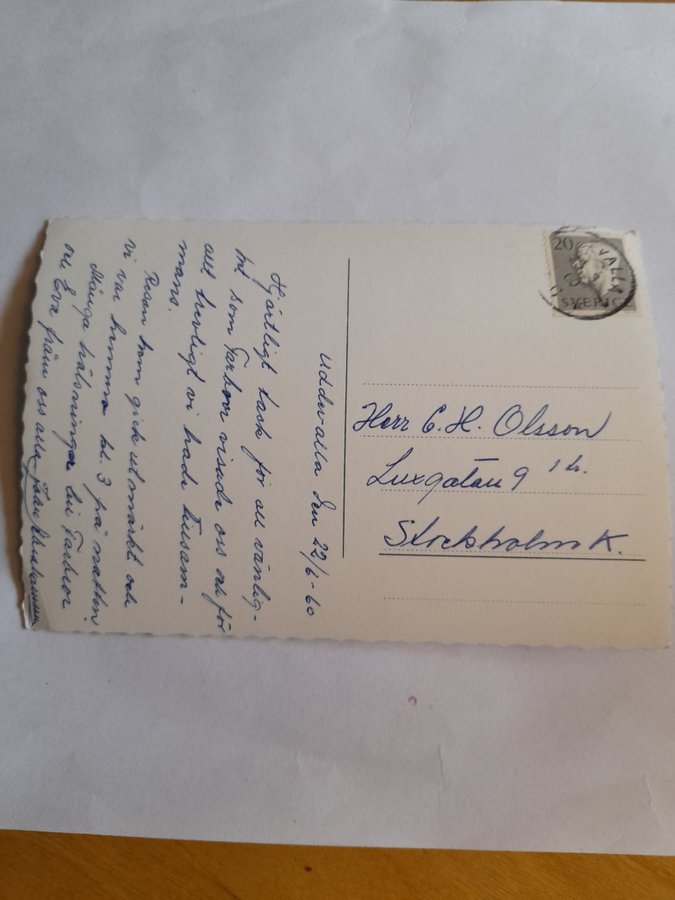 Uddevalla den 22/6-60
Hjärtligt tack för all vänlig-
het som Farbror visade oss och för
allt trevligt vi hade tillsam-
mans.
Resan hem gick utmärkt och
vi var hemma kl. 3 på natten.
Många hälsningar till Farbror
och Eva från oss alla
20
VALLA
SVERIGE
Herr C. H. Olsson
Luxgatan 9
Stockholm K.